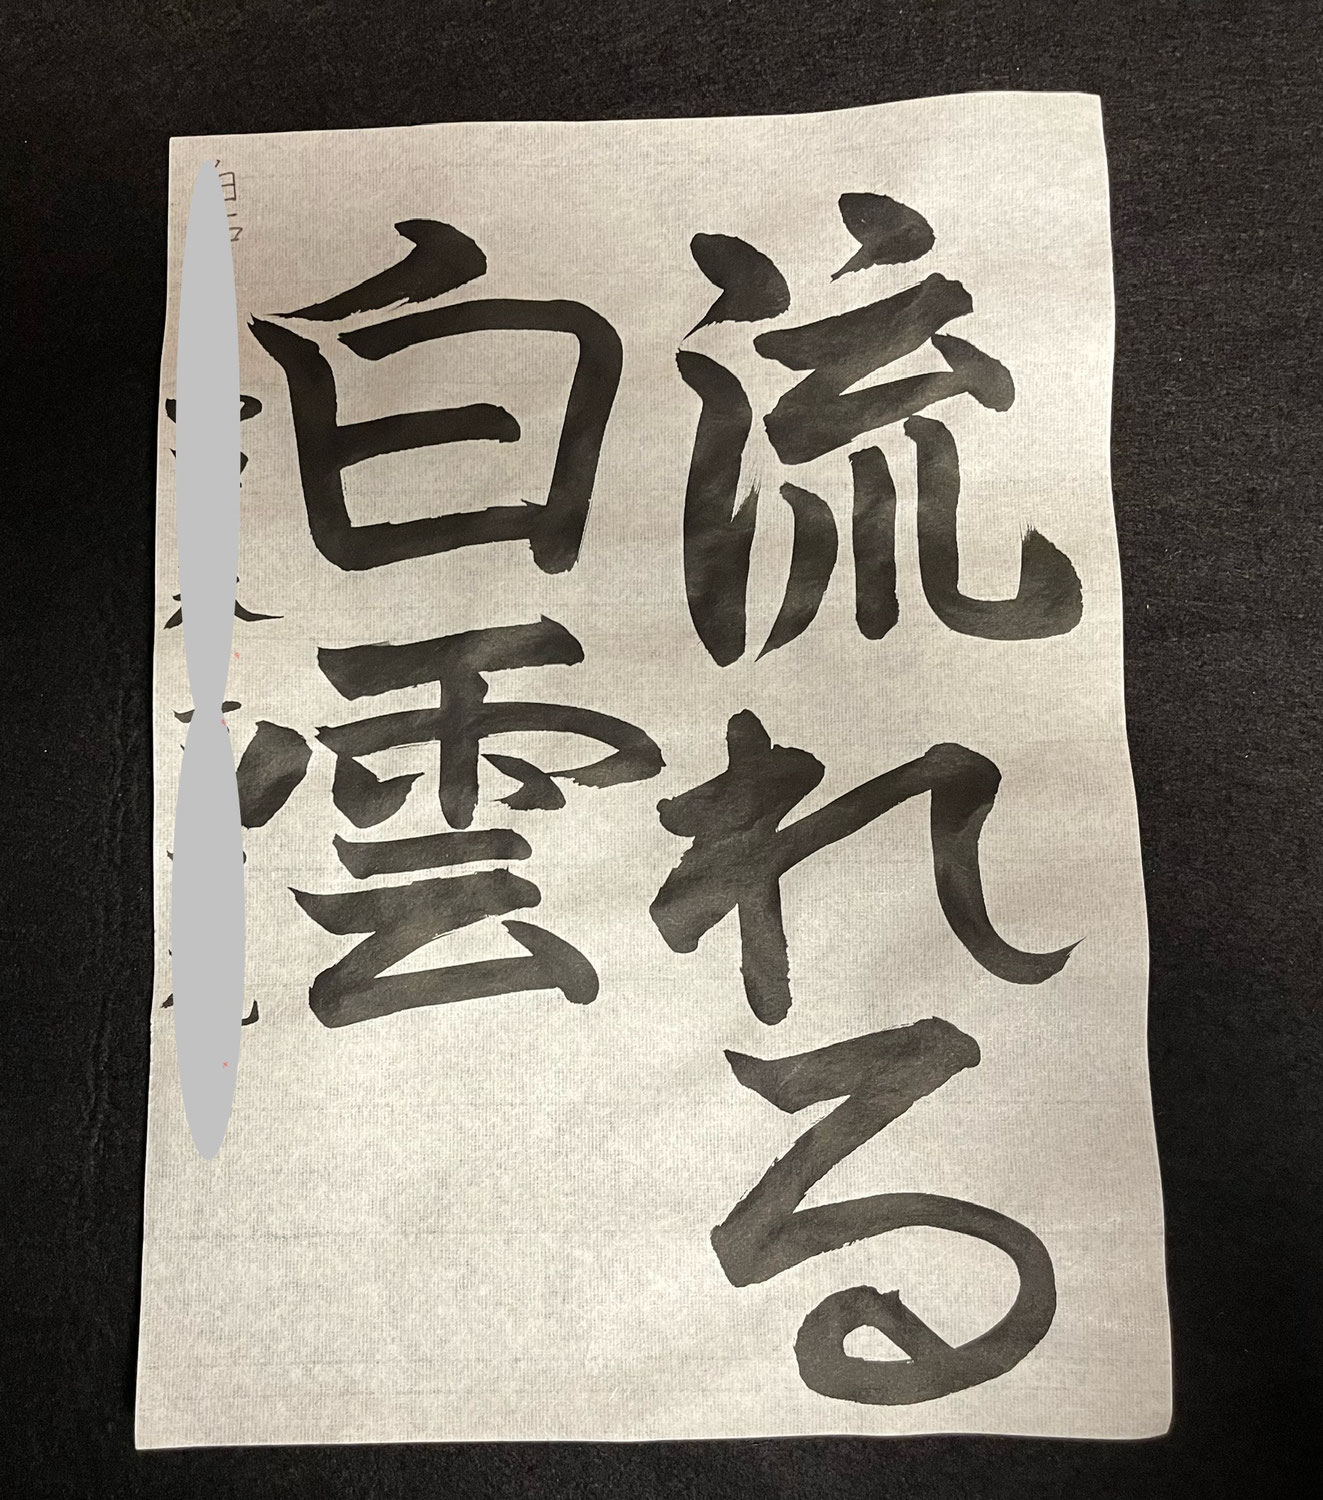 流れる
白雲